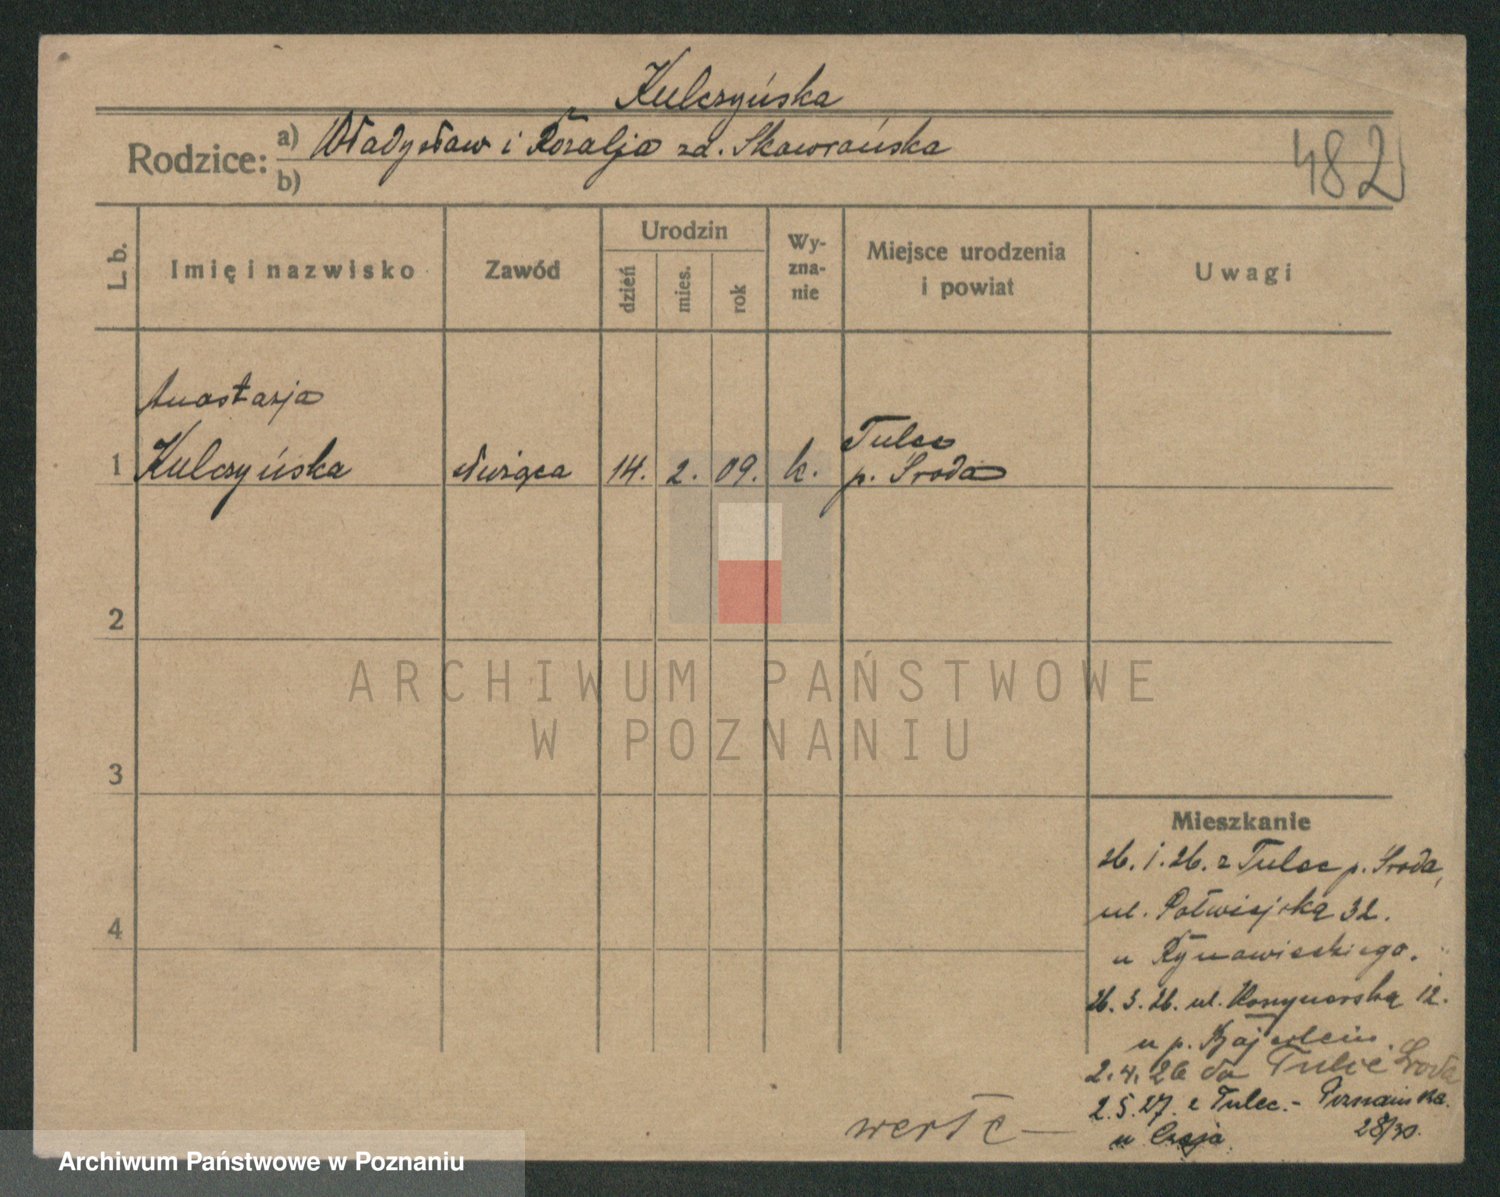 Kulczyńska
Rodzice: a) Władysław i Rozalja zd. Skawrańska
b)
482
L. b.
Imię i nazwisko
Zawód
Urodzin
dzień
mies.
rok
Wy-
zna-
nie
Miejsce urodzenia
i powiat
Uwagi
Anastazja
1 Kulczyńska służąca 14. 2. 09. k. Tulce
p. Środa
2
3
4
ARCHIWUM PAŃSTWOWE
W POZNANIU
Mieszkanie
26. 1. 26. z Tulec p. Środa,
ul. Półwiejska 32.
u
26. 3. 26. ul. 12.
u p.
2. 4. 26 do Tulec Środa
2. 5. 27. z Tulec.- Poznańska
u 28/30.
werte
Archiwum Państwowe w Poznaniu